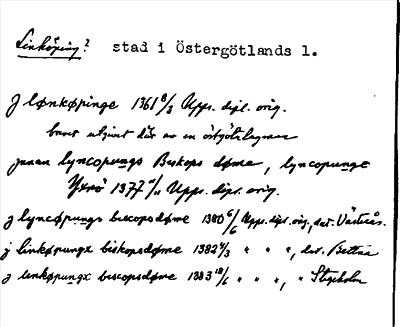 Linköping? stad i Östergötlands l.
J lønkøpinge 1361 8/3 Upps. dipl. orig.
brevet utgivet där av en östgötelagman
innan lyncopungs Biskops døme, lyncopunge
Ytrö 1377 /11 Upps. dipl. orig.
j lyncøpungs biscopsdøme 1380 6/6 Upps. dipl. orig., dat. Västerås.
j linkøpungx biskopsdøme 1382 /3 " " ", dat. Bettna
j linkøpungx biscopsdøme 1383 18/6 " " ", " Stegeholm